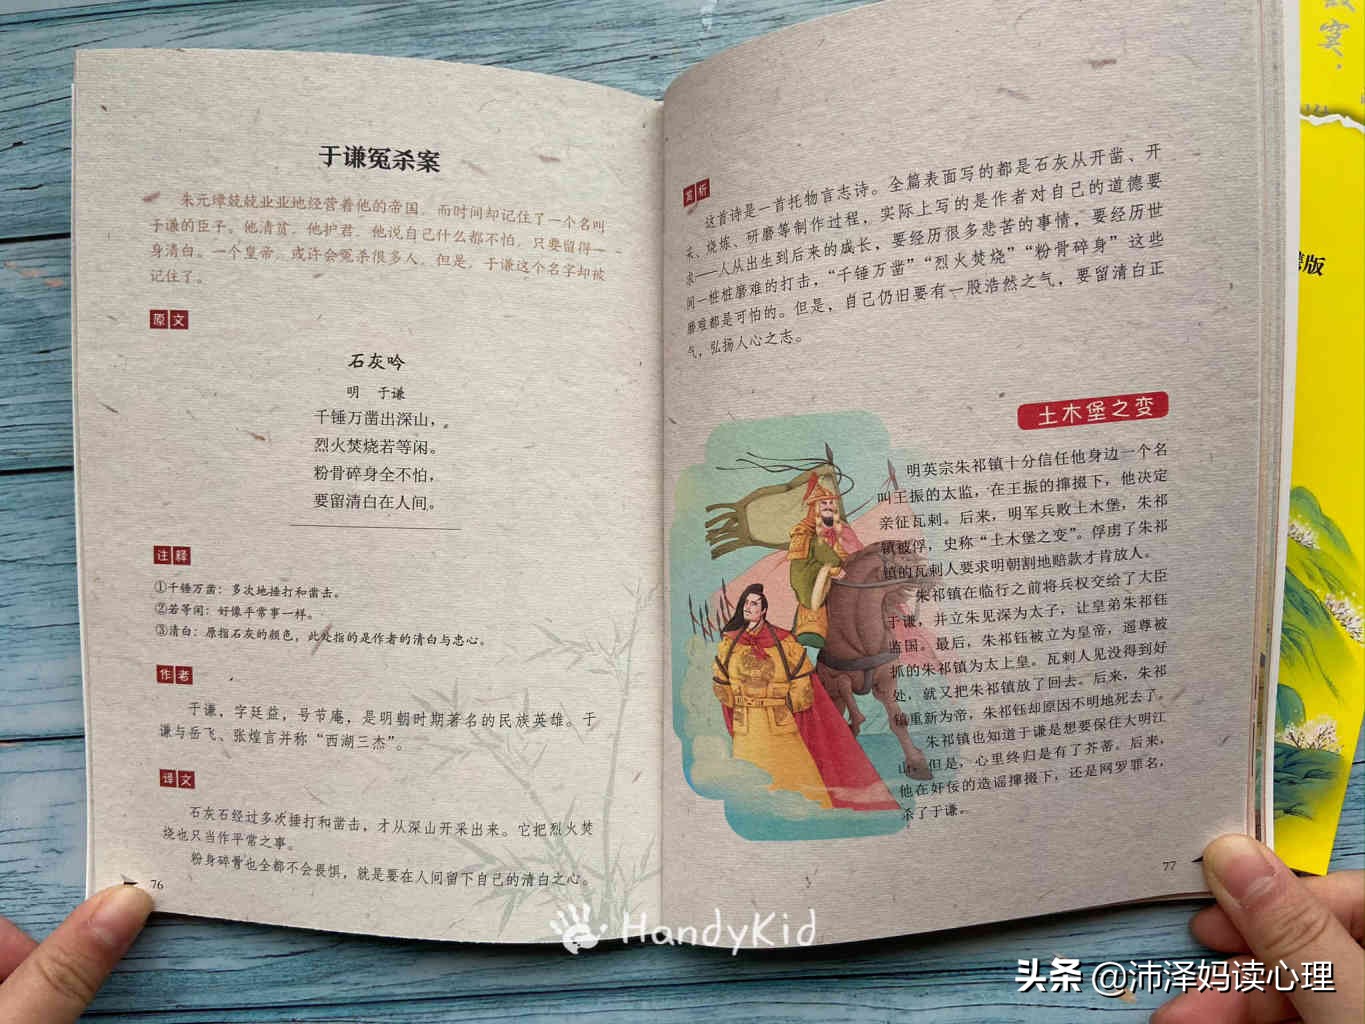 于谦冤杀案
朱元璋兢兢业业地经营着他的帝国，而时间却记住了一个名叫
于谦的臣子。他清贫，他护君，他说自己什么都不怕，只要留得一
身清白。一个皇帝，或许会冤杀很多人，但是，于谦这个名字却被
记住了。
原文
石灰吟
明 于谦
千锤万凿出深山，
烈火焚烧若等闲。
粉骨碎身全不怕，
要留清白在人间。
注释
①千锤万凿：多次地捶打和凿击。
②若等闲：好像平常事一样。
③清白：原指石灰的颜色，此处指的是作者的清白与忠心。
作者
于谦，字廷益，号节庵，是明朝时期著名的民族英雄。于
谦与岳飞、张煌言并称“西湖三杰”。
译文
石灰石经过多次捶打和凿击，才从深山开采出来。它把烈火焚
烧也只当作平常之事。
粉身碎骨也全都不会畏惧，就是要在人间留下自己的清白之心。
76
赏析
这首诗是一首托物言志诗。全篇表面写的都是石灰从开凿、开
采、烧炼、研磨等制作过程，实际上写的是作者对自己的道德要
求——人从出生到后来的成长，要经历很多悲苦的事情，要经历世
间一桩桩磨难的打击，“千锤万凿”“烈火焚烧”“粉骨碎身”这些
磨难都是可怕的。但是，自己仍旧要有一股浩然之气，要留清白正
气，弘扬人心之志。
土木堡之变
明英宗朱祁镇十分信任他身边一个名
叫王振的太监，在王振的撺掇下，他决定
亲征瓦剌。后来，明军兵败土木堡，朱祁
镇被俘，史称“土木堡之变”。俘虏了朱祁
镇的瓦剌人要求明朝割地赔款才肯放人。
朱祁镇在临行之前将兵权交给了大臣
于谦，并立朱见深为太子，让皇弟朱祁钰
监国。最后，朱祁钰被立为皇帝，遥尊被
抓的朱祁镇为太上皇。瓦剌人见没得到好
处，就又把朱祁镇放了回去。后来，朱祁
镇重新为帝，朱祁钰却原因不明地死去了。
朱祁镇也知道于谦是想要保住大明江
山，但是，心里终归是有了芥蒂。后来，
他在奸佞的造谣撺掇下，还是网罗罪名，
杀了于谦。
77
版
HandyKid
头条 @沛泽妈读心理